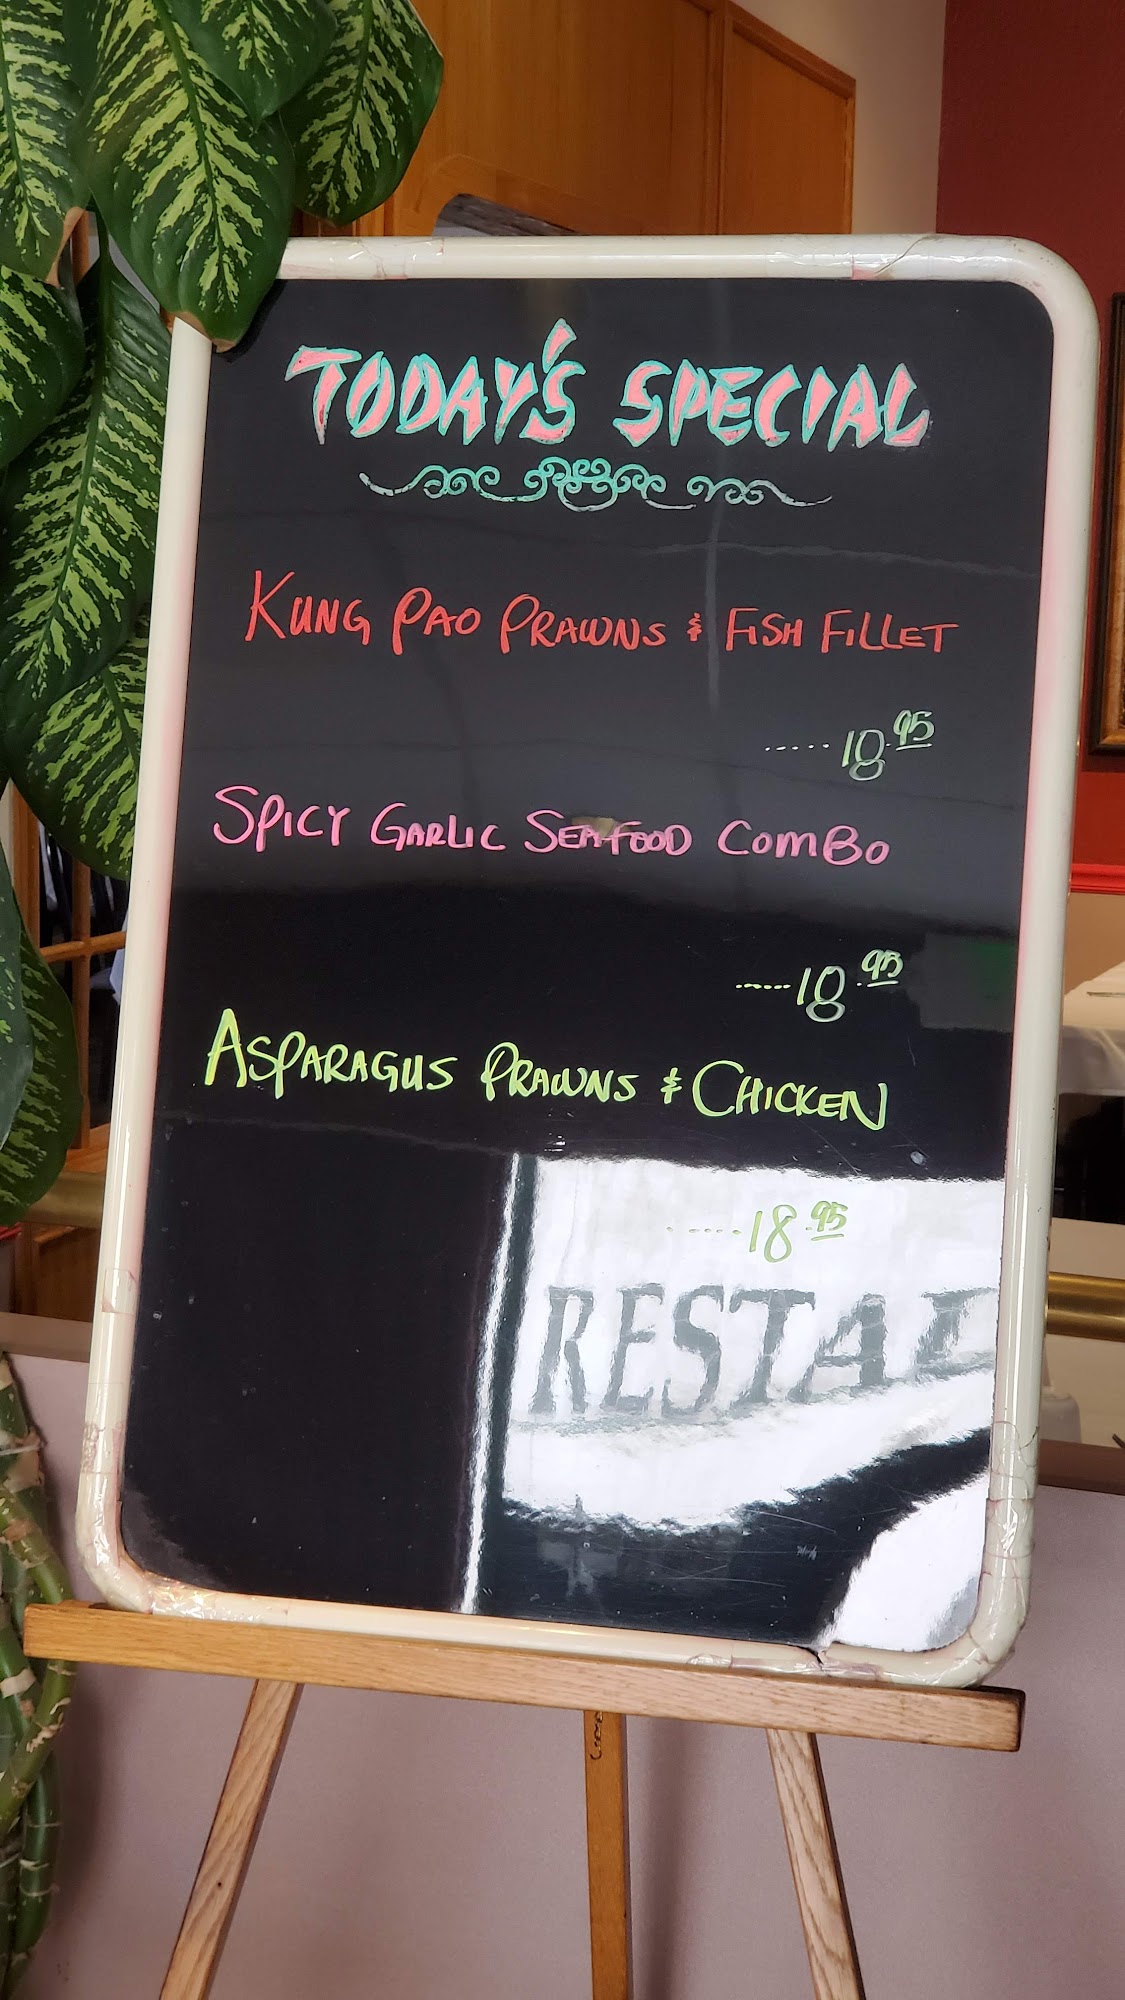 TODAY'S SPECIAL
KUNG PAO PRAWNS & FISH FILLET
.....18.95
SPICY GARLIC SEAFOOD COMBO
......18.95
ASPARAGUS PRAWNS & CHICKEN
......18.95
RESTA